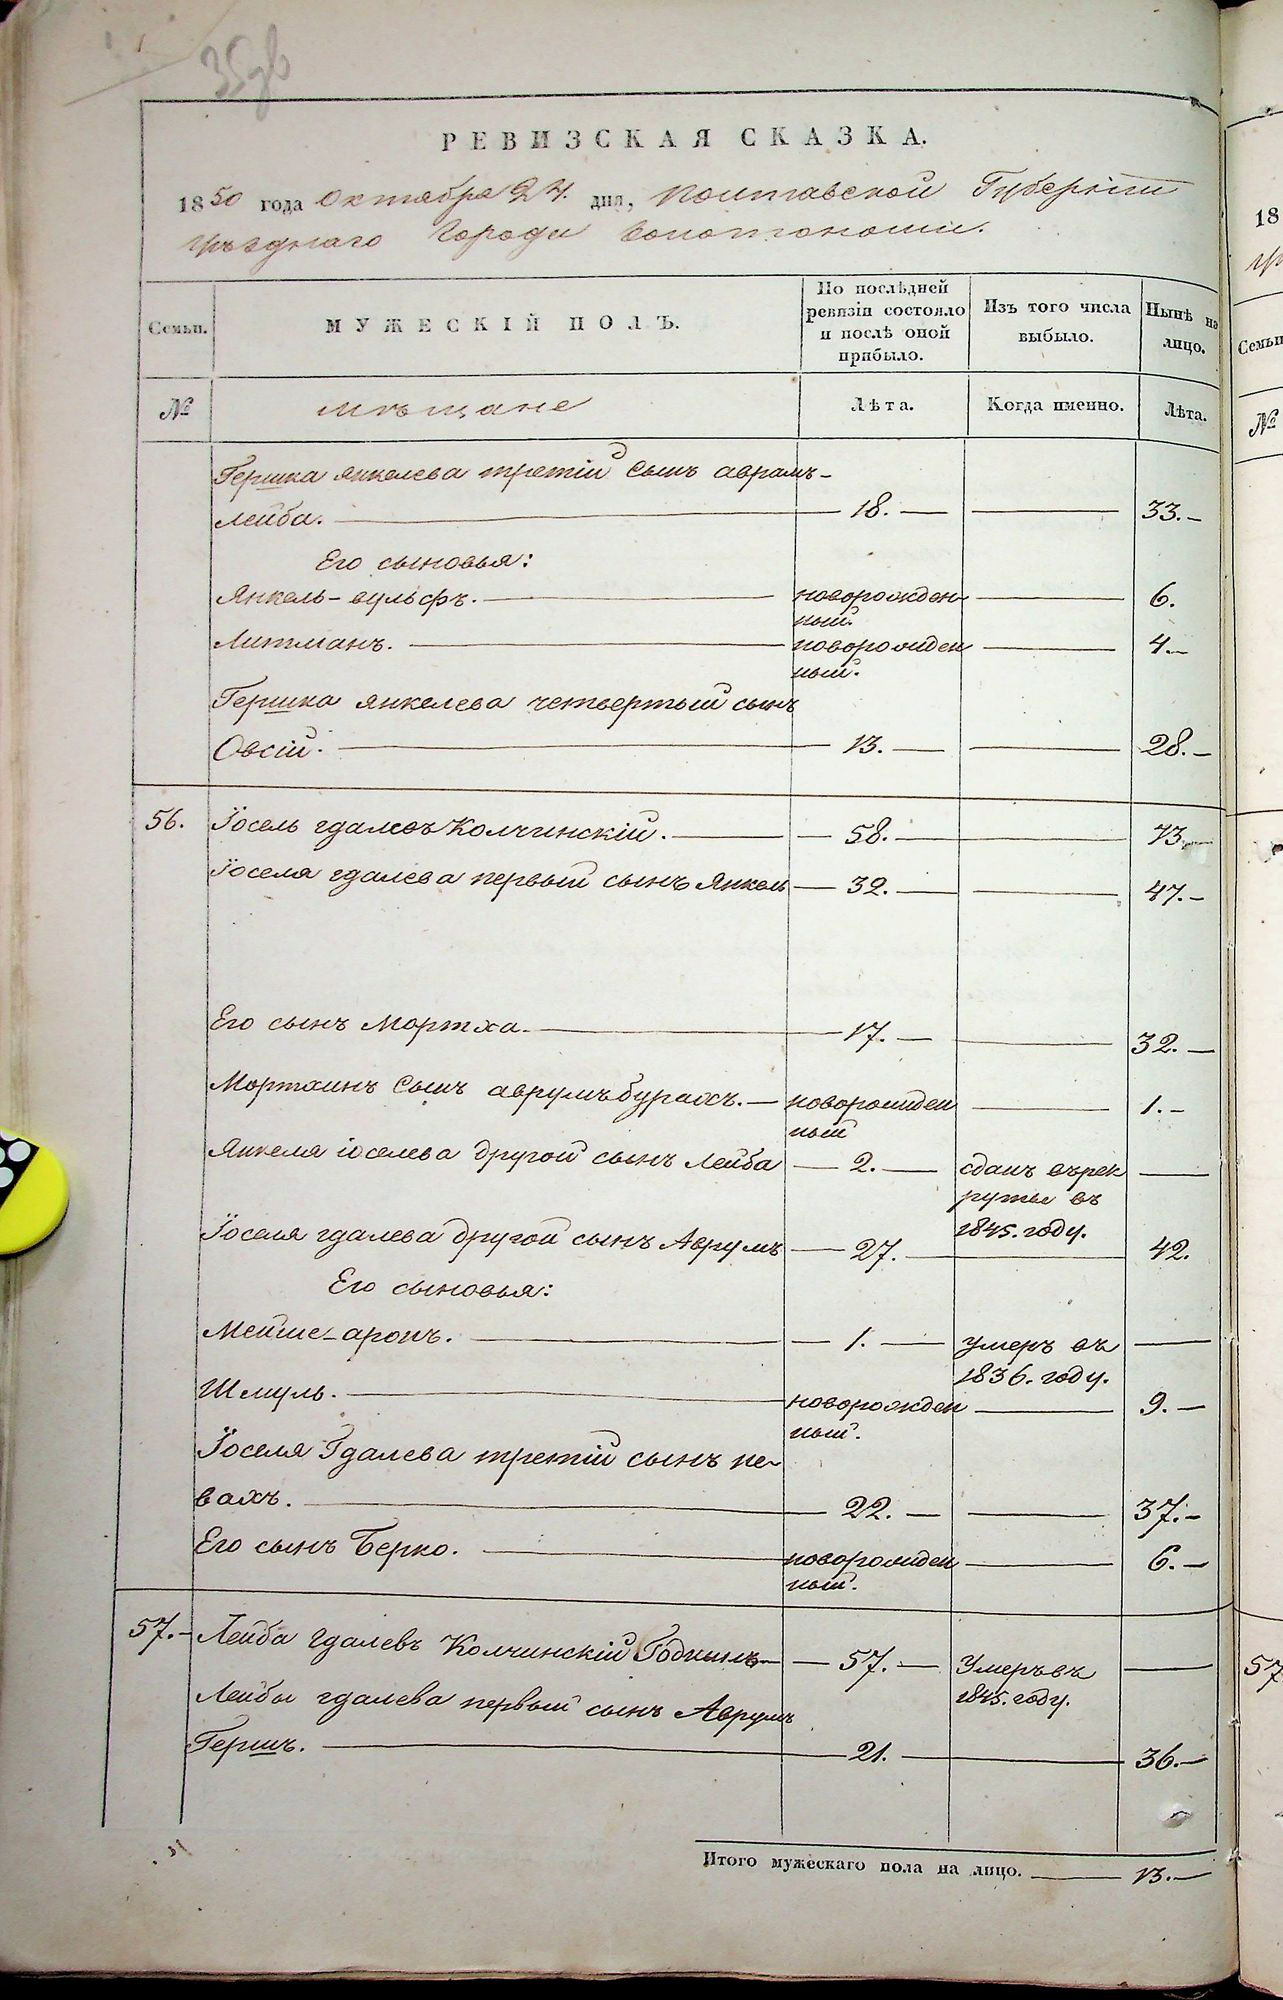 35 об
РЕВИЗСКАЯ СКАЗКА.
1850 года Октября 24. дня, Полтавской Губерніи
уѣзднаго Города Золотоноши.
Семьи.
МУЖЕСКІЙ ПОЛЪ.
По послѣдней
ревизіи состояло
и послѣ оной
прибыло.
Изъ того числа
выбыло.
Нынѣ на
лицо.
№
мѣщане
Лѣта.
Когда именно.
Лѣта.
Гершка янкелева третій сынъ аврамъ-
Лейба. 18. 33.
Его сыновья:
Янкель-вульфъ. новорожден- 6.
ный.
Литманъ. новорожден 4.
ный.
Гершка янкелева четвертый сынъ
Овсій. 13. 28.
56. Іосель гдалевъ Колчинскій. 58. 73.
Іоселя гдалева первый сынъ Янкель 32. 47.
Его сынъ Мортха. 17. 32.
Мортхинъ Сынъ аврумъ бурахъ. новорожден 1.
ный
Янкеля іоселева другой сынъ Лейба 2. сданъ върек
руты въ
1845. году.
Іоселя гдалева другой сынъ Аврумъ 27. 42.
Его сыновья:
Мейше-аронъ. 1. умеръ въ
1836. году.
Шмуль. новорожден 9.
ный.
Іоселя Гдалева третій сынъ пе-
вахъ. 22. 37.
Его сынъ Берко. новорожден 6.
ный.
57. Лейба Гдалевъ Колчинскій 57. Умеръ въ
1845. году.
Лейбы гдалева первый сынъ Аврумъ
Гершъ. 21. 36.
Итого мужескаго пола на лицо. 13.
18
Семьи
№
57